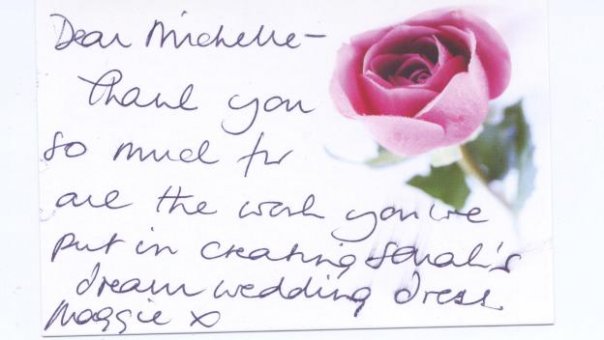 Dear Michelle -
Thank you
so much for
all the work you've
put in creating Sarah's
dream wedding dress
Maggie x